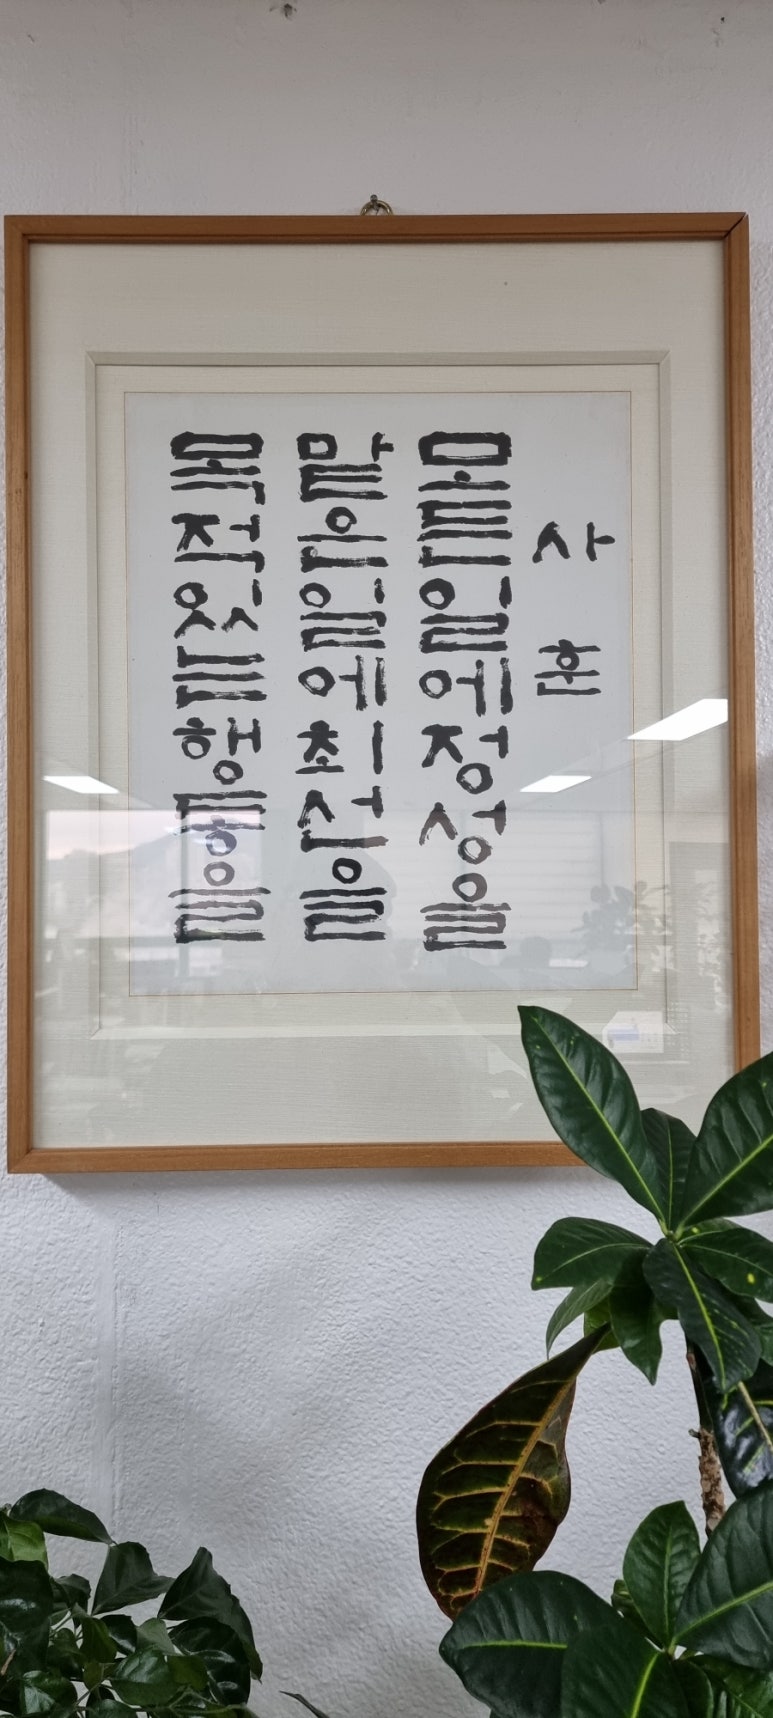 사훈
모든일에정성을
맡은일에최선을
목적있는행동을